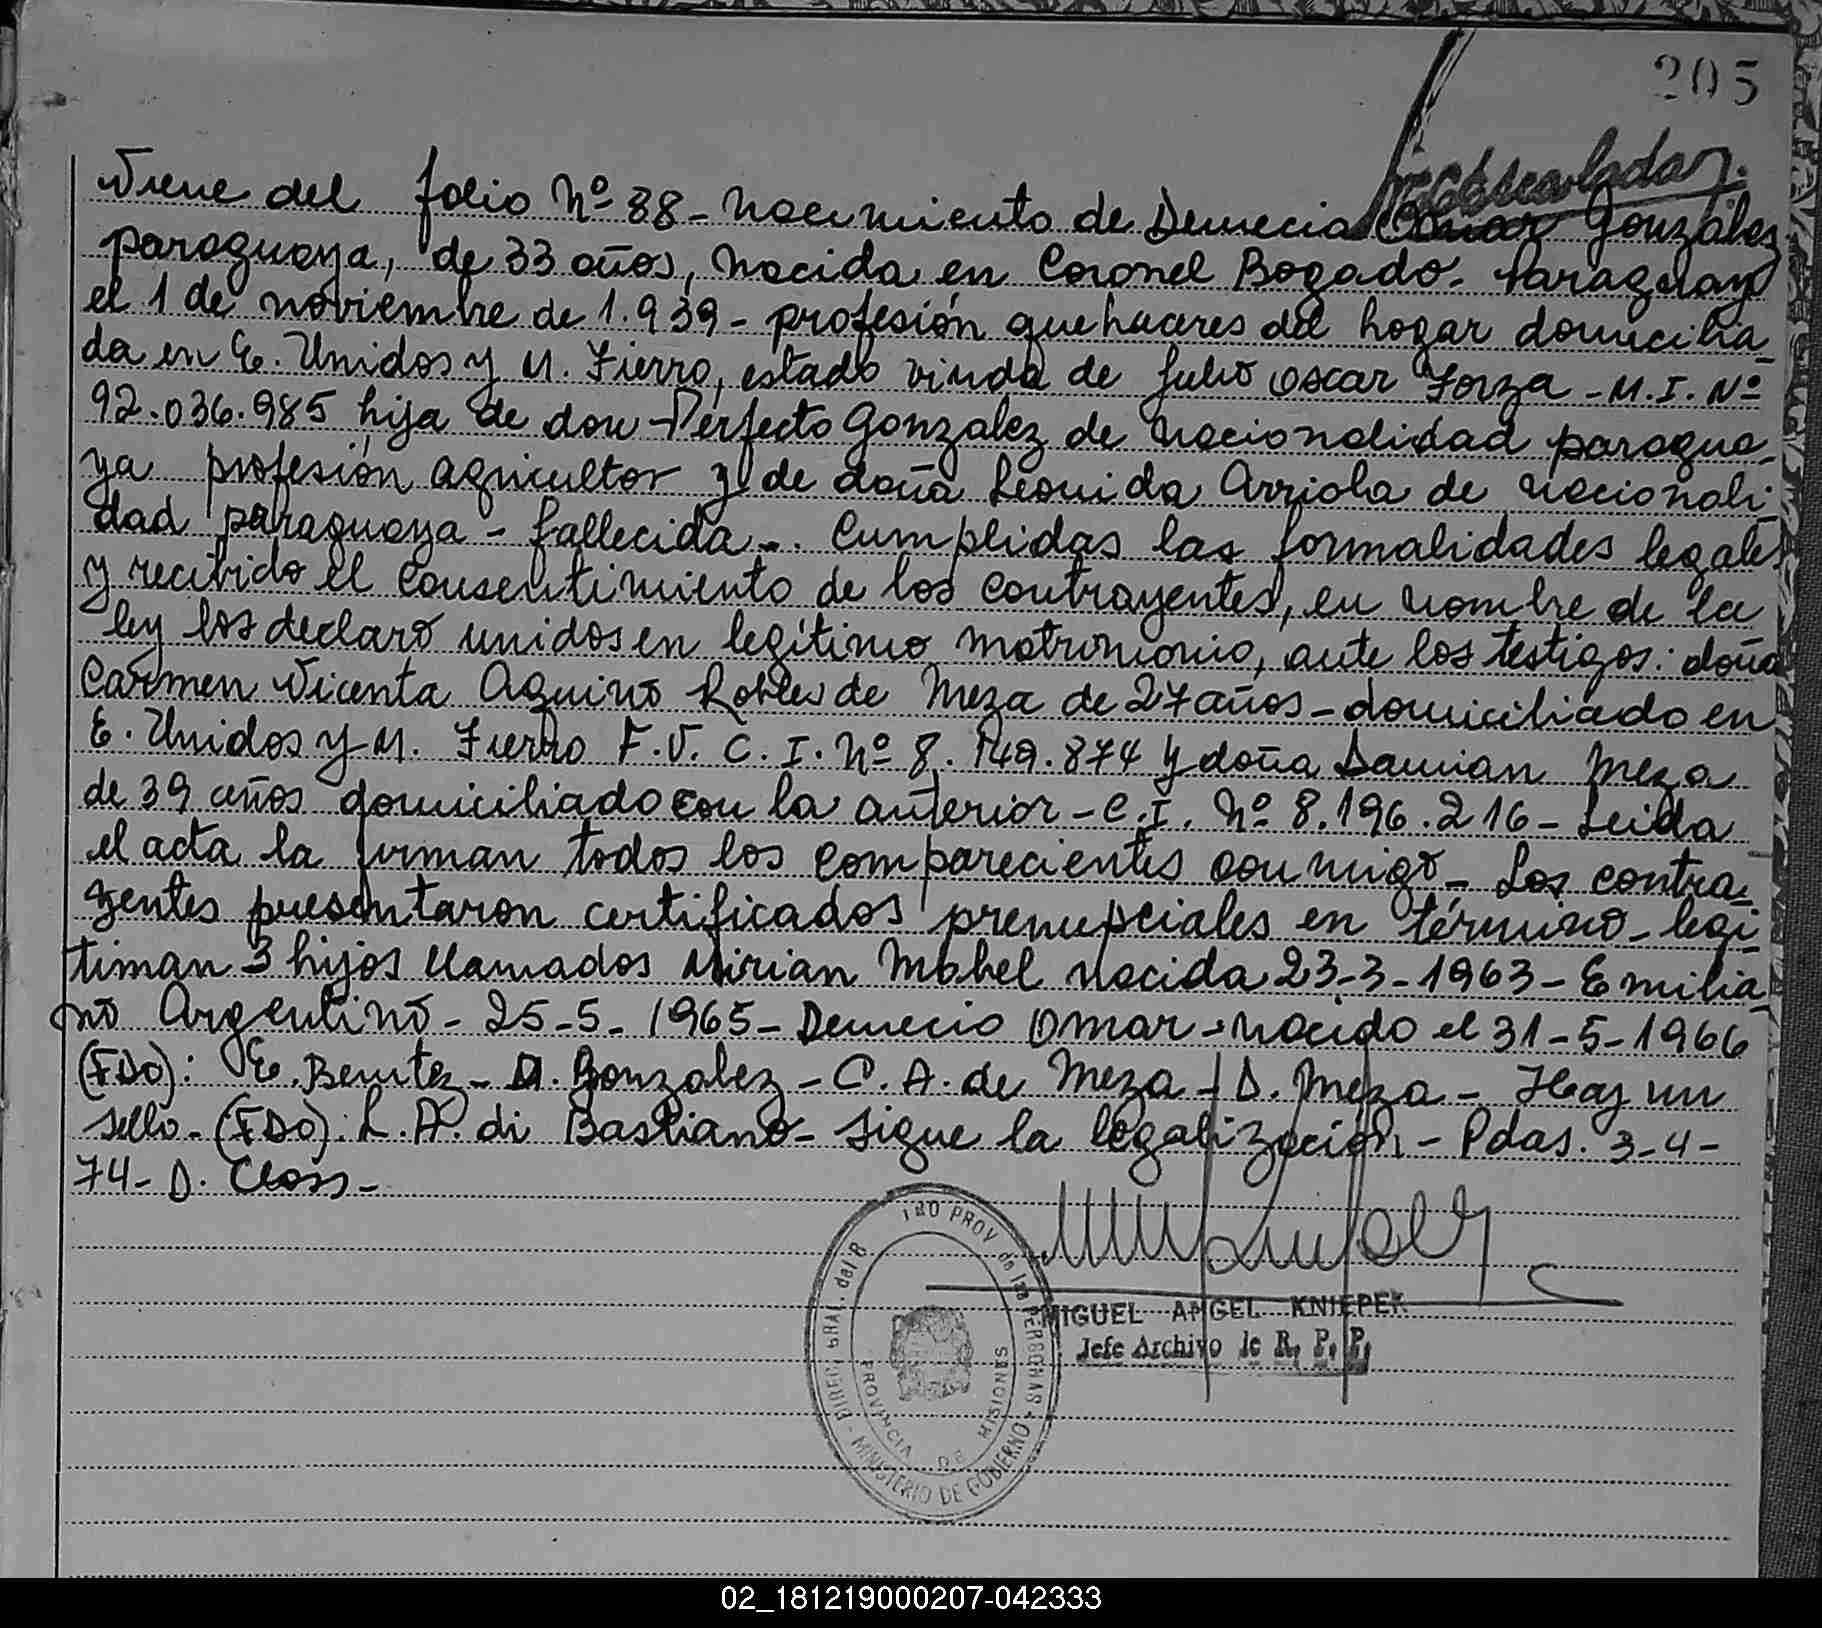 205
Viene del folio Nº 88 - Nacimiento de Demecia Omar Gonzalez
paraguaya, de 33 años, nacida en Coronel Bogado. Paraguay
el 1 de noviembre de 1.939 - profesión quehaceres del hogar domicilia_
da en E. Unidos y M. Fierro, estado viuda de Julio Oscar Forza - M.I. Nº
92.036.985 hija de don Perfecto Gonzalez de nacionalidad paragua_
ya profesión agricultor y de doña Leonida Arriola de nacionali_
dad paraguaya - fallecida -. Cumplidas las formalidades legales
y recibido el consentimiento de los contrayentes, en nombre de la
ley los declaro unidos en legítimo matrimonio, ante los testigos: doña
Carmen Vicenta Aquino Robles de Meza de 27 años - domiciliado en
E. Unidos y M. Fierro F.V. C.I. Nº 8.149.874 y doña Damian Meza
de 39 años domiciliado con la anterior - C.I. Nº 8.196.216 - Leida
el acta la firman todos los comparecientes conmigo - Los contra_
yentes presentaron certificados prenupciales en término - legi_
timan 3 hijos llamados Mirian Mabel nacida 23-3-1963 - Emilia_
no Argentino - 25-5-1965 - Demecio Omar - nacido el 31-5-1966
(FDO): E. Benitez - D. Gonzalez - C. A. de Meza - D. Meza - Hay un
sello - (FDO): L. A. di Bastiano - Sigue la legalización - Pdas. 3-4-
74 - D. Closs -
MIGUEL ANGEL KNIEPER
Jefe Archivo de R. P. P.
DIREC GRAL del R TRO PROV de las PERSONAS
MINISTERIO DE GOBIERNO
PROVINCIA DE MISIONES
02_181219000207-042333